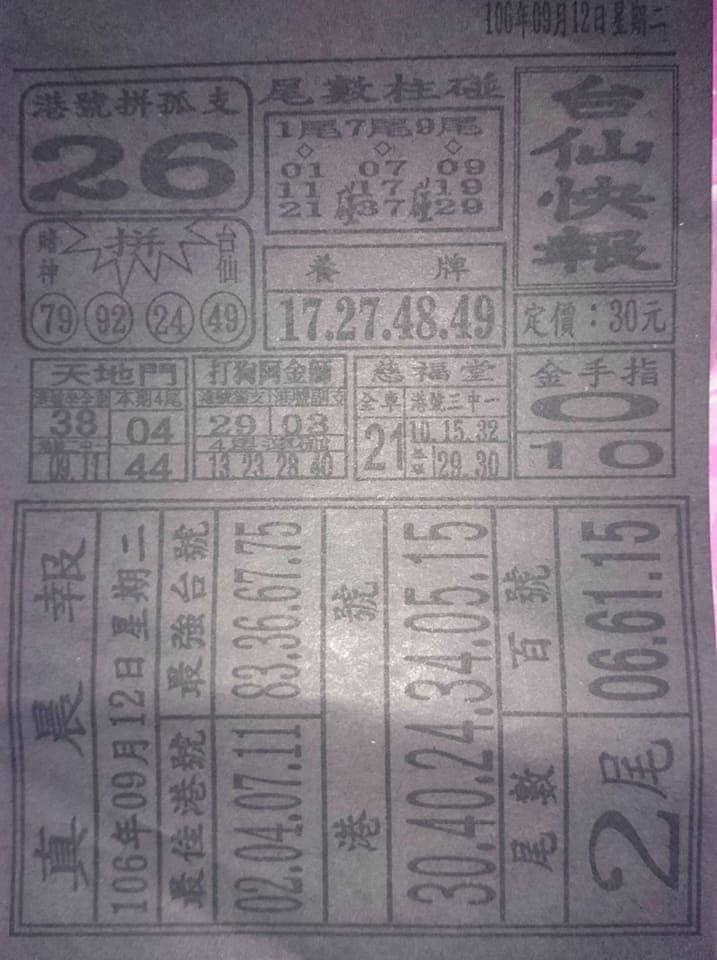 106年09月12日星期二
台仙快報
定價：30元
港號拼孤支
26
尾數柱碰
1尾7尾9尾
01 07 09
11 碰 17 碰 19
21 37 29
賭神 拼 台仙
79 92 24 49
養牌
17.27.48.49
天地門
本期4尾
38 04
09.11 44
打狗阿金獅
29 03
13.23.28.40
慈福堂
全車 港號三中一
21 10.15.32
29.30
金手指
0
10
真晨報
106年09月12日星期二
最佳港號 最強台號
02.04.07.11 83.36.67.75
港號
30.40.24.34.05.15
尾數 百號
2尾 06.61.15